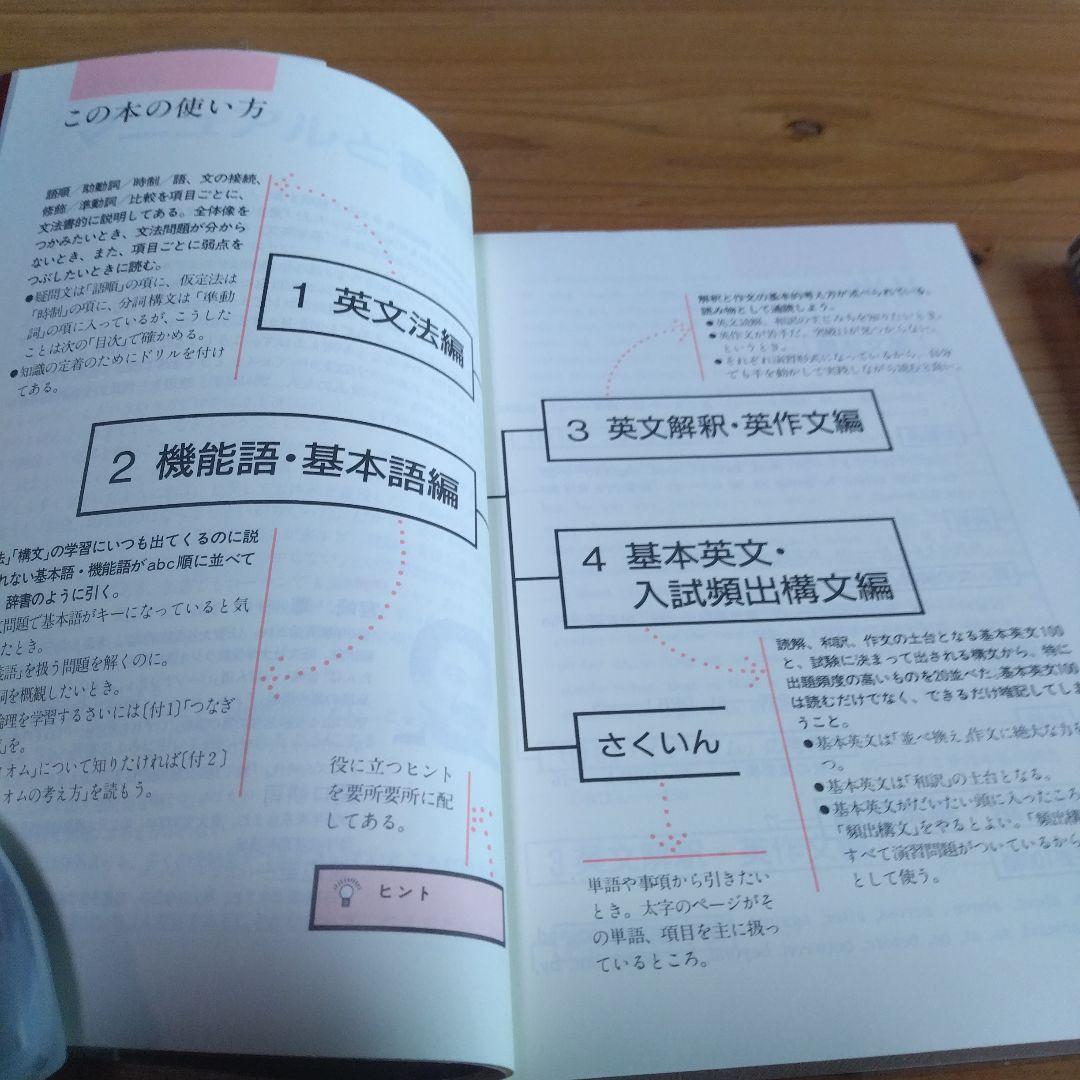 この本の使い方
語順/助動詞/時制/語、文の接続、
修飾/準動詞/比較を項目ごとに、
文法書的に説明してある。全体像を
つかみたいとき、文法問題が分から
ないとき、また、項目ごとに弱点を
つぶしたいときに読む。
●疑問文は「語順」の項に、仮定法は
「時制」の項に、分詞構文は「準動
詞」の項に入っているが、こうした
ことは次の「目次」で確かめる。
●知識の定着のためにドリルを付け
てある。
1 英文法編
2 機能語・基本語編
法」「構文」の学習にいつも出てくるのに説
れない基本語・機能語がabc順に並べて
辞書のように引く。
問題で基本語がキーになっていると気
たとき。
語」を扱う問題を解くのに。
詞を概観したいとき。
論理を学習するさいには〔付1〕「つなぎ
を。
オム」について知りたければ〔付2〕
オムの考え方」を読もう。
役に立つヒント
を要所要所に配
してある。
ヒント
解釈と作文の基本的考え方が述べられている。
読み物として通読しよう。
●英文読解、和訳のすじみちを知りたいとき。
●英作文が苦手だ、突破口が見つからない、
というとき。
●それぞれ演習形式になっているから、自分
でも手を動かして実践しながら読むと良い。
3 英文解釈・英作文編
4 基本英文・
入試頻出構文編
読解、和訳、作文の土台となる基本英文100
と、試験に決まって出される構文から、特に
出題頻度の高いものを20並べた。基本英文100
は読むだけでなく、できるだけ暗記してしま
うこと。
●基本英文は「並べ換え」作文に絶大な力を
つ。
●基本英文は「和訳」の土台となる。
●基本英文がだいたい頭に入ったころ
「頻出構文」をやるとよい。「頻出構
すべて演習問題がついているから
として使う。
さくいん
単語や事項から引きたい
とき。太字のページがそ
の単語、項目を主に扱っ
ているところ。